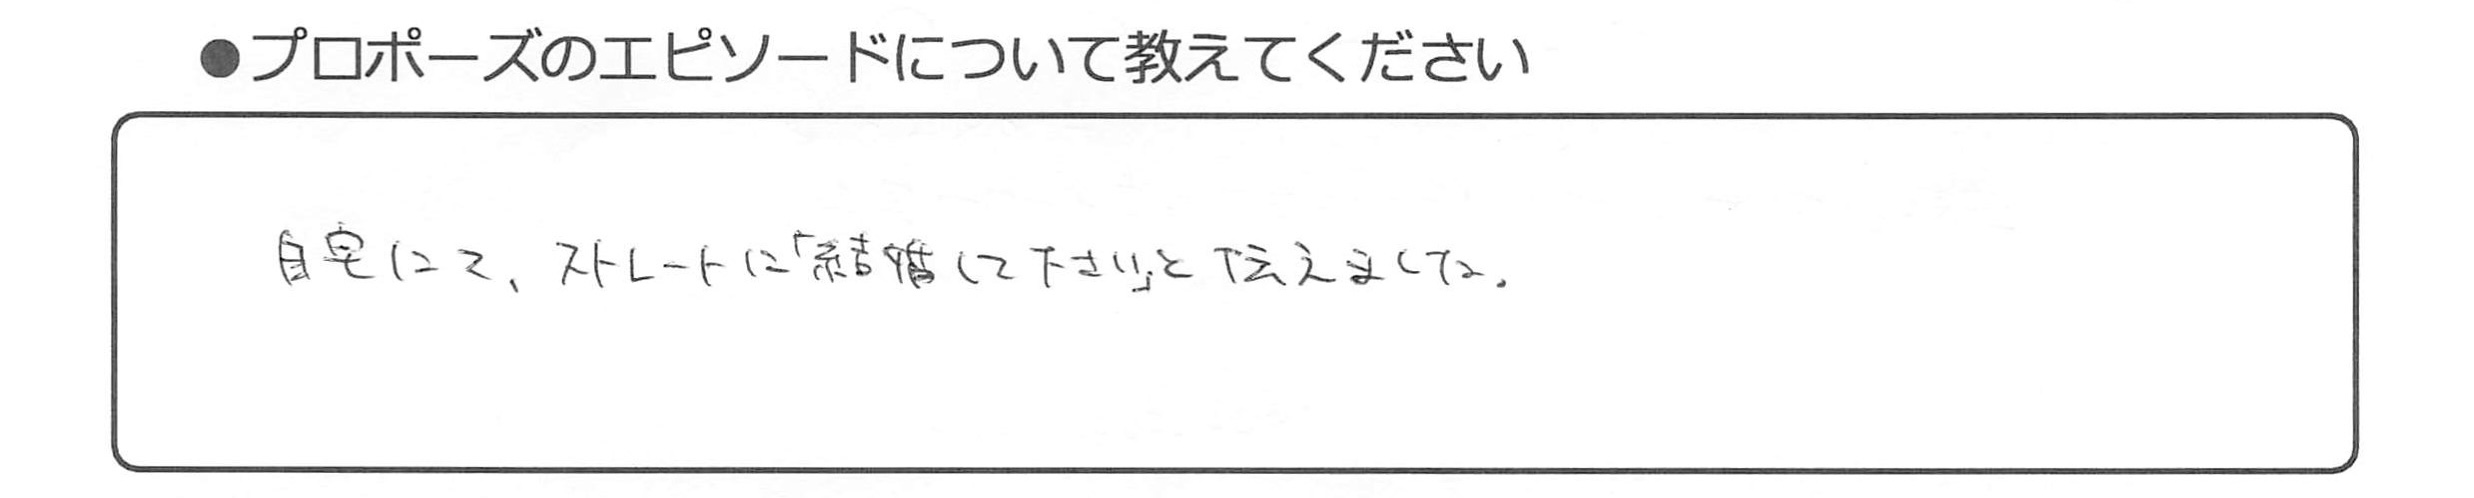 ●プロポーズのエピソードについて教えてください
自宅にて、ストレートに「結婚して下さい」と伝えました。